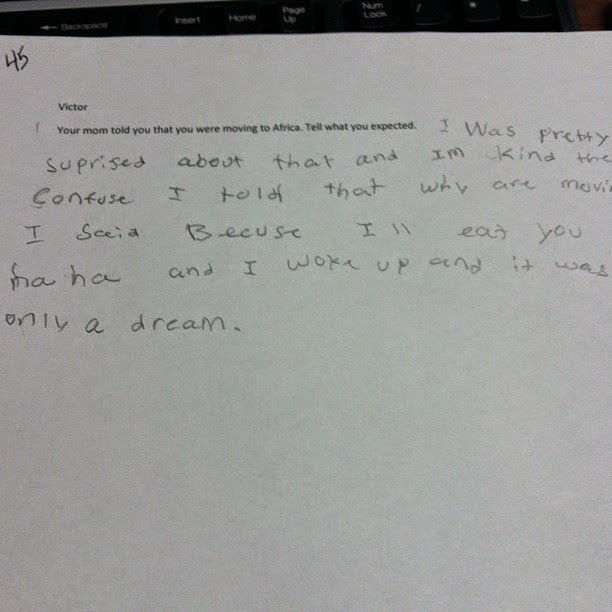 Backspace Insert Home Page Up Num Lock / *
45
Victor
Your mom told you that you were moving to Africa. Tell what you expected. I Was pretty
suprised about that and Im kind the
Confuse I told that why are movin
I Said Becuse I ll eat you
ha ha and I woke up and it was
only a dream.